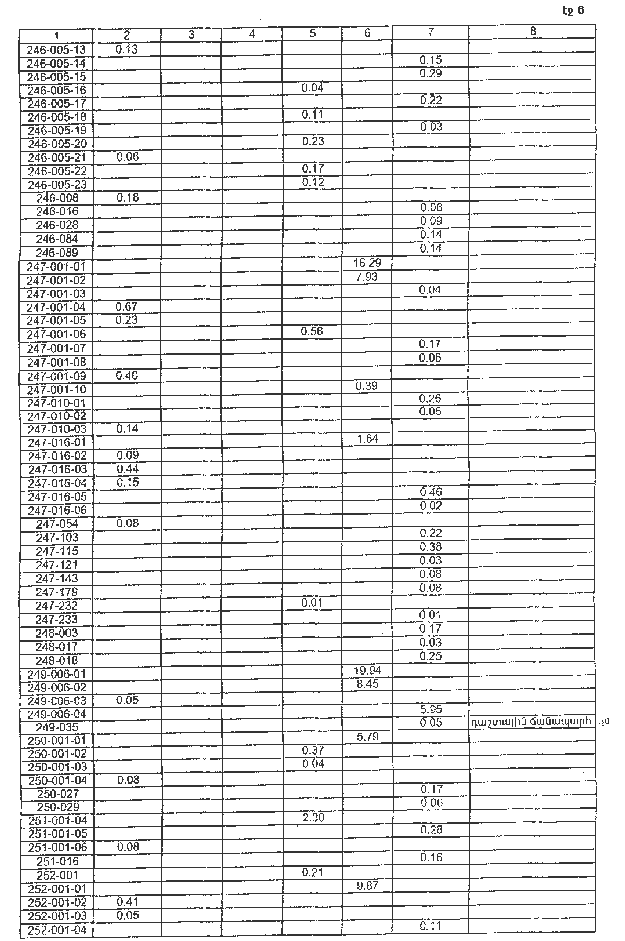 էջ 6
1 2 3 4 5 6 7 8
246-005-13 0.13
246-005-14 0.15
246-005-15 0.29
246-005-16 0.04
246-005-17 0.22
246-005-18 0.11
246-005-19 0.03
246-005-20 0.23
246-005-21 0.06
246-005-22 0.17
246-005-23 0.12
246-008 0.18
246-016 0.06
246-028 0.09
246-084 0.14
246-089 0.14
247-001-01 16.29
247-001-02 7.93
247-001-03 0.04
247-001-04 0.67
247-001-05 0.23
247-001-06 0.56
247-001-07 0.17
247-001-08 0.06
247-001-09 0.40
247-001-10 0.39
247-010-01 0.26
247-010-02 0.05
247-010-03 0.14
247-016-01 1.64
247-016-02 0.09
247-016-03 0.44
247-016-04 0.15
247-016-05 0.46
247-016-06 0.02
247-054 0.08
247-103 0.22
247-115 0.38
247-121 0.03
247-143 0.08
247-179 0.08
247-232 0.01
247-233 0.01
248-003 0.17
248-017 0.03
248-018 0.25
249-006-01 19.94
249-006-02 8.45
249-006-03 0.05
249-006-04 5.95
249-035 0.05 դաշտային ճանապարհ
250-001-01 5.79
250-001-02 0.37
250-001-03 0.04
250-001-04 0.08
250-027 0.17
250-029 0.06
251-001-04 2.30
251-001-05 0.28
251-001-06 0.08
251-016 0.16
252-001 0.21
252-001-01 9.87
252-001-02 0.41
252-001-03 0.05
252-001-04 0.11